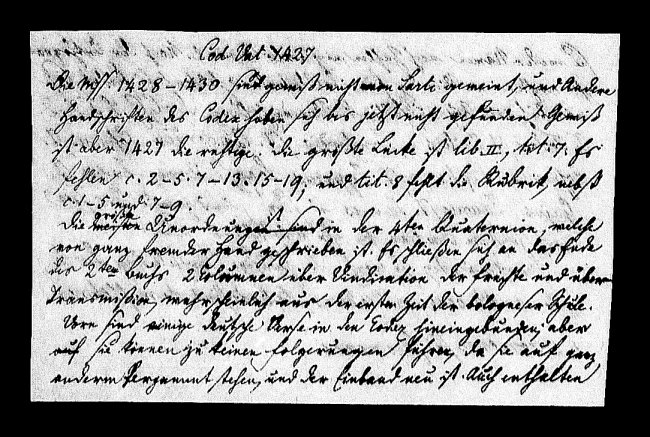 Cod Vat 1427
Die Mss. 1428–1430 sind gewiß nicht von Sarti gemeint, und Andere
Handschriften des Codex haben sich bis jetzt nicht gefunden. Gewiß
ist aber 1427 die richtige: die größte Lücke ist lib. II, tit. 7. Es
fehlen c. 2–5. 7–13. 15–19, und tit. 8 fehlt die Rubrik, nebst
c. 1–5 und 7–9.
größte
Die Unordnung ist in der 4ten Quaternion, welche
von ganz fremder Hand geschrieben ist. Es schließen sich an das Ende
des 2ten Buchs 2 Columnen über Vindication der Früchte und über
Transmission, wahrscheinlich aus der ersten Zeit der bologneser Schule.
Vorn sind einige deutsche Verse in den Codex hineingebunden; aber
auch sie können zu keinen Folgerungen führen, da sie auf ganz
anderm Pergament stehen, und der Einband neu ist. Auch enthalten